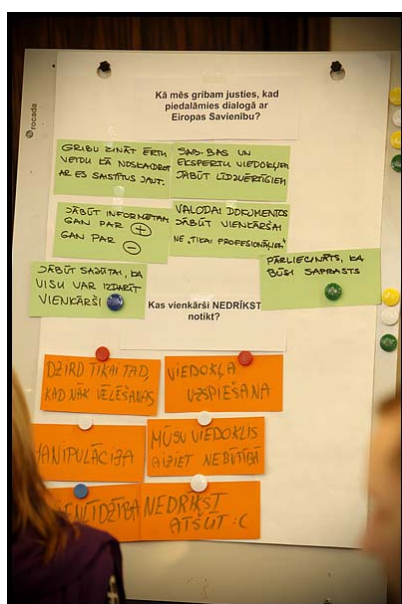 rocada
Kā mēs gribam justies, kad
piedalāmies dialogā ar
Eiropas Savienību?
GRIBU ZINĀT ĒRTU
VEIDU KĀ NOSKAIDROT
AR ES SAISTĪTUS JAUT.
SAB-BAS UN
EKSPERTU VIEDOKĻIEM
JĀBŪT LĪDZVĒRTĪGIEM
JĀBŪT INFORMĒTAM
GAN PAR +
GAN PAR -
VALODAI DOKUMENTOS
JĀBŪT VIENKĀRŠAI
NE „TIKAI PROFESIONĀĻIEM"
JĀBŪT SAJŪTAI, KA
VISU VAR IZDARĪT
VIENKĀRŠI
PĀRLIECINĀTS, KA
BŪSI SAPRASTS
Kas vienkārši NEDRĪKST
notikt?
DZIRD TIKAI TAD,
KAD NĀK VĒLĒŠANAS
VIEDOKĻA
UZSPIEŠANA
MANIPULĀCIJA
MŪSU VIEDOKLIS
AIZIET NEBŪTĪBĀ
NEDRĪKST
ATŠŪT :C